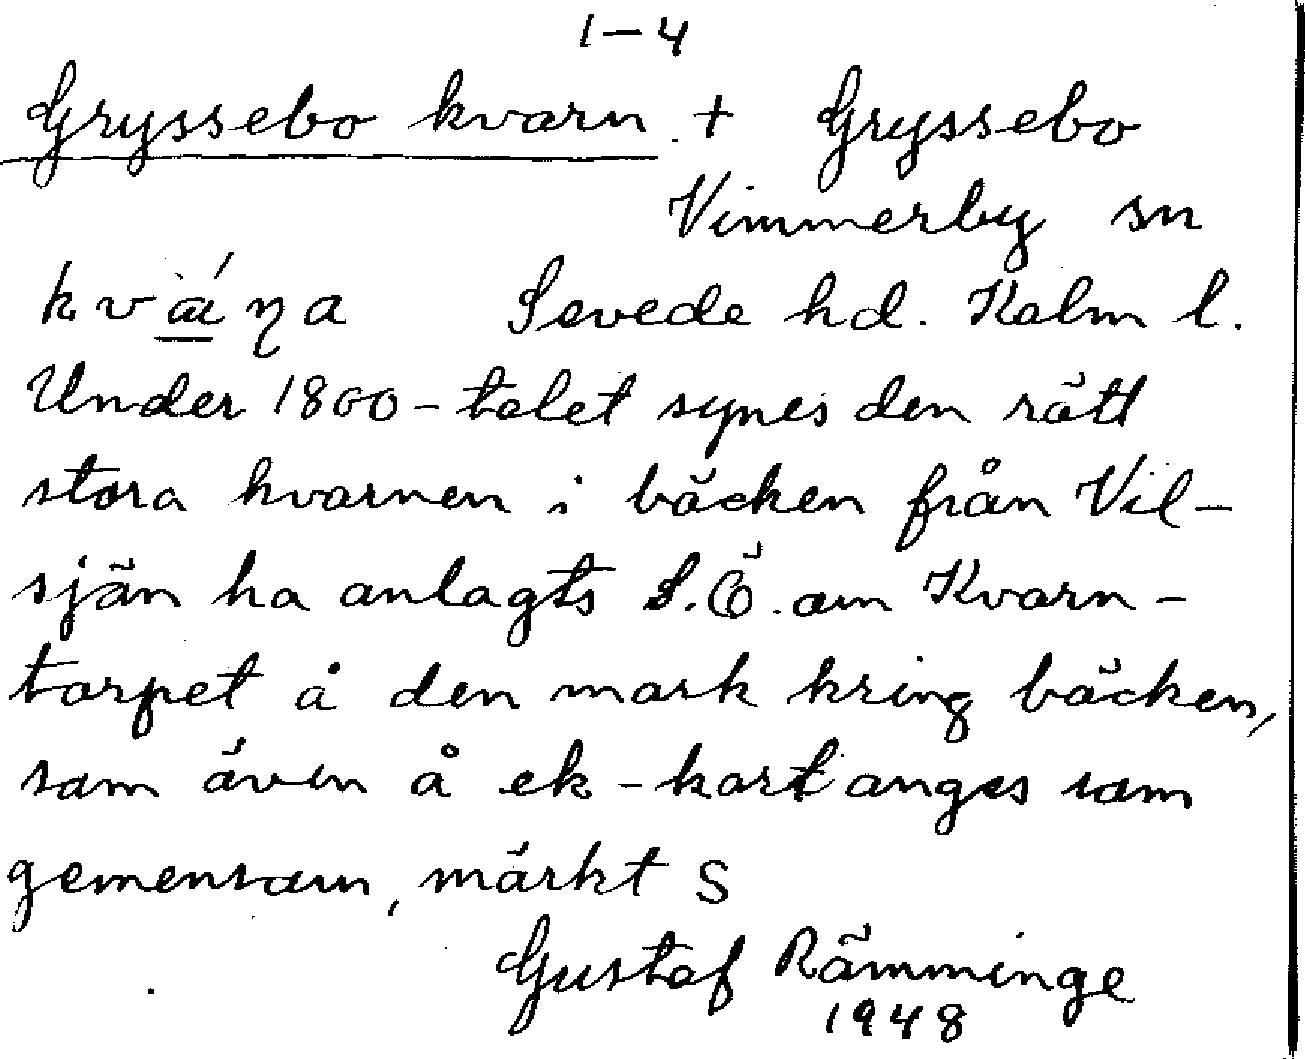 1–4
Gryssebo kvarn + Gryssebo
Vimmerby sn
Sevede hd. Kalm l.
Under 1800-talet synes den rätt
stora kvarnen i bäcken från Vil-
sjön ha anlagts S.Ö. om Kvarn-
torpet å den mark kring bäcken,
som även å ek-kart anges som
gemensam, märkt S
Gustaf Rämminge
1948